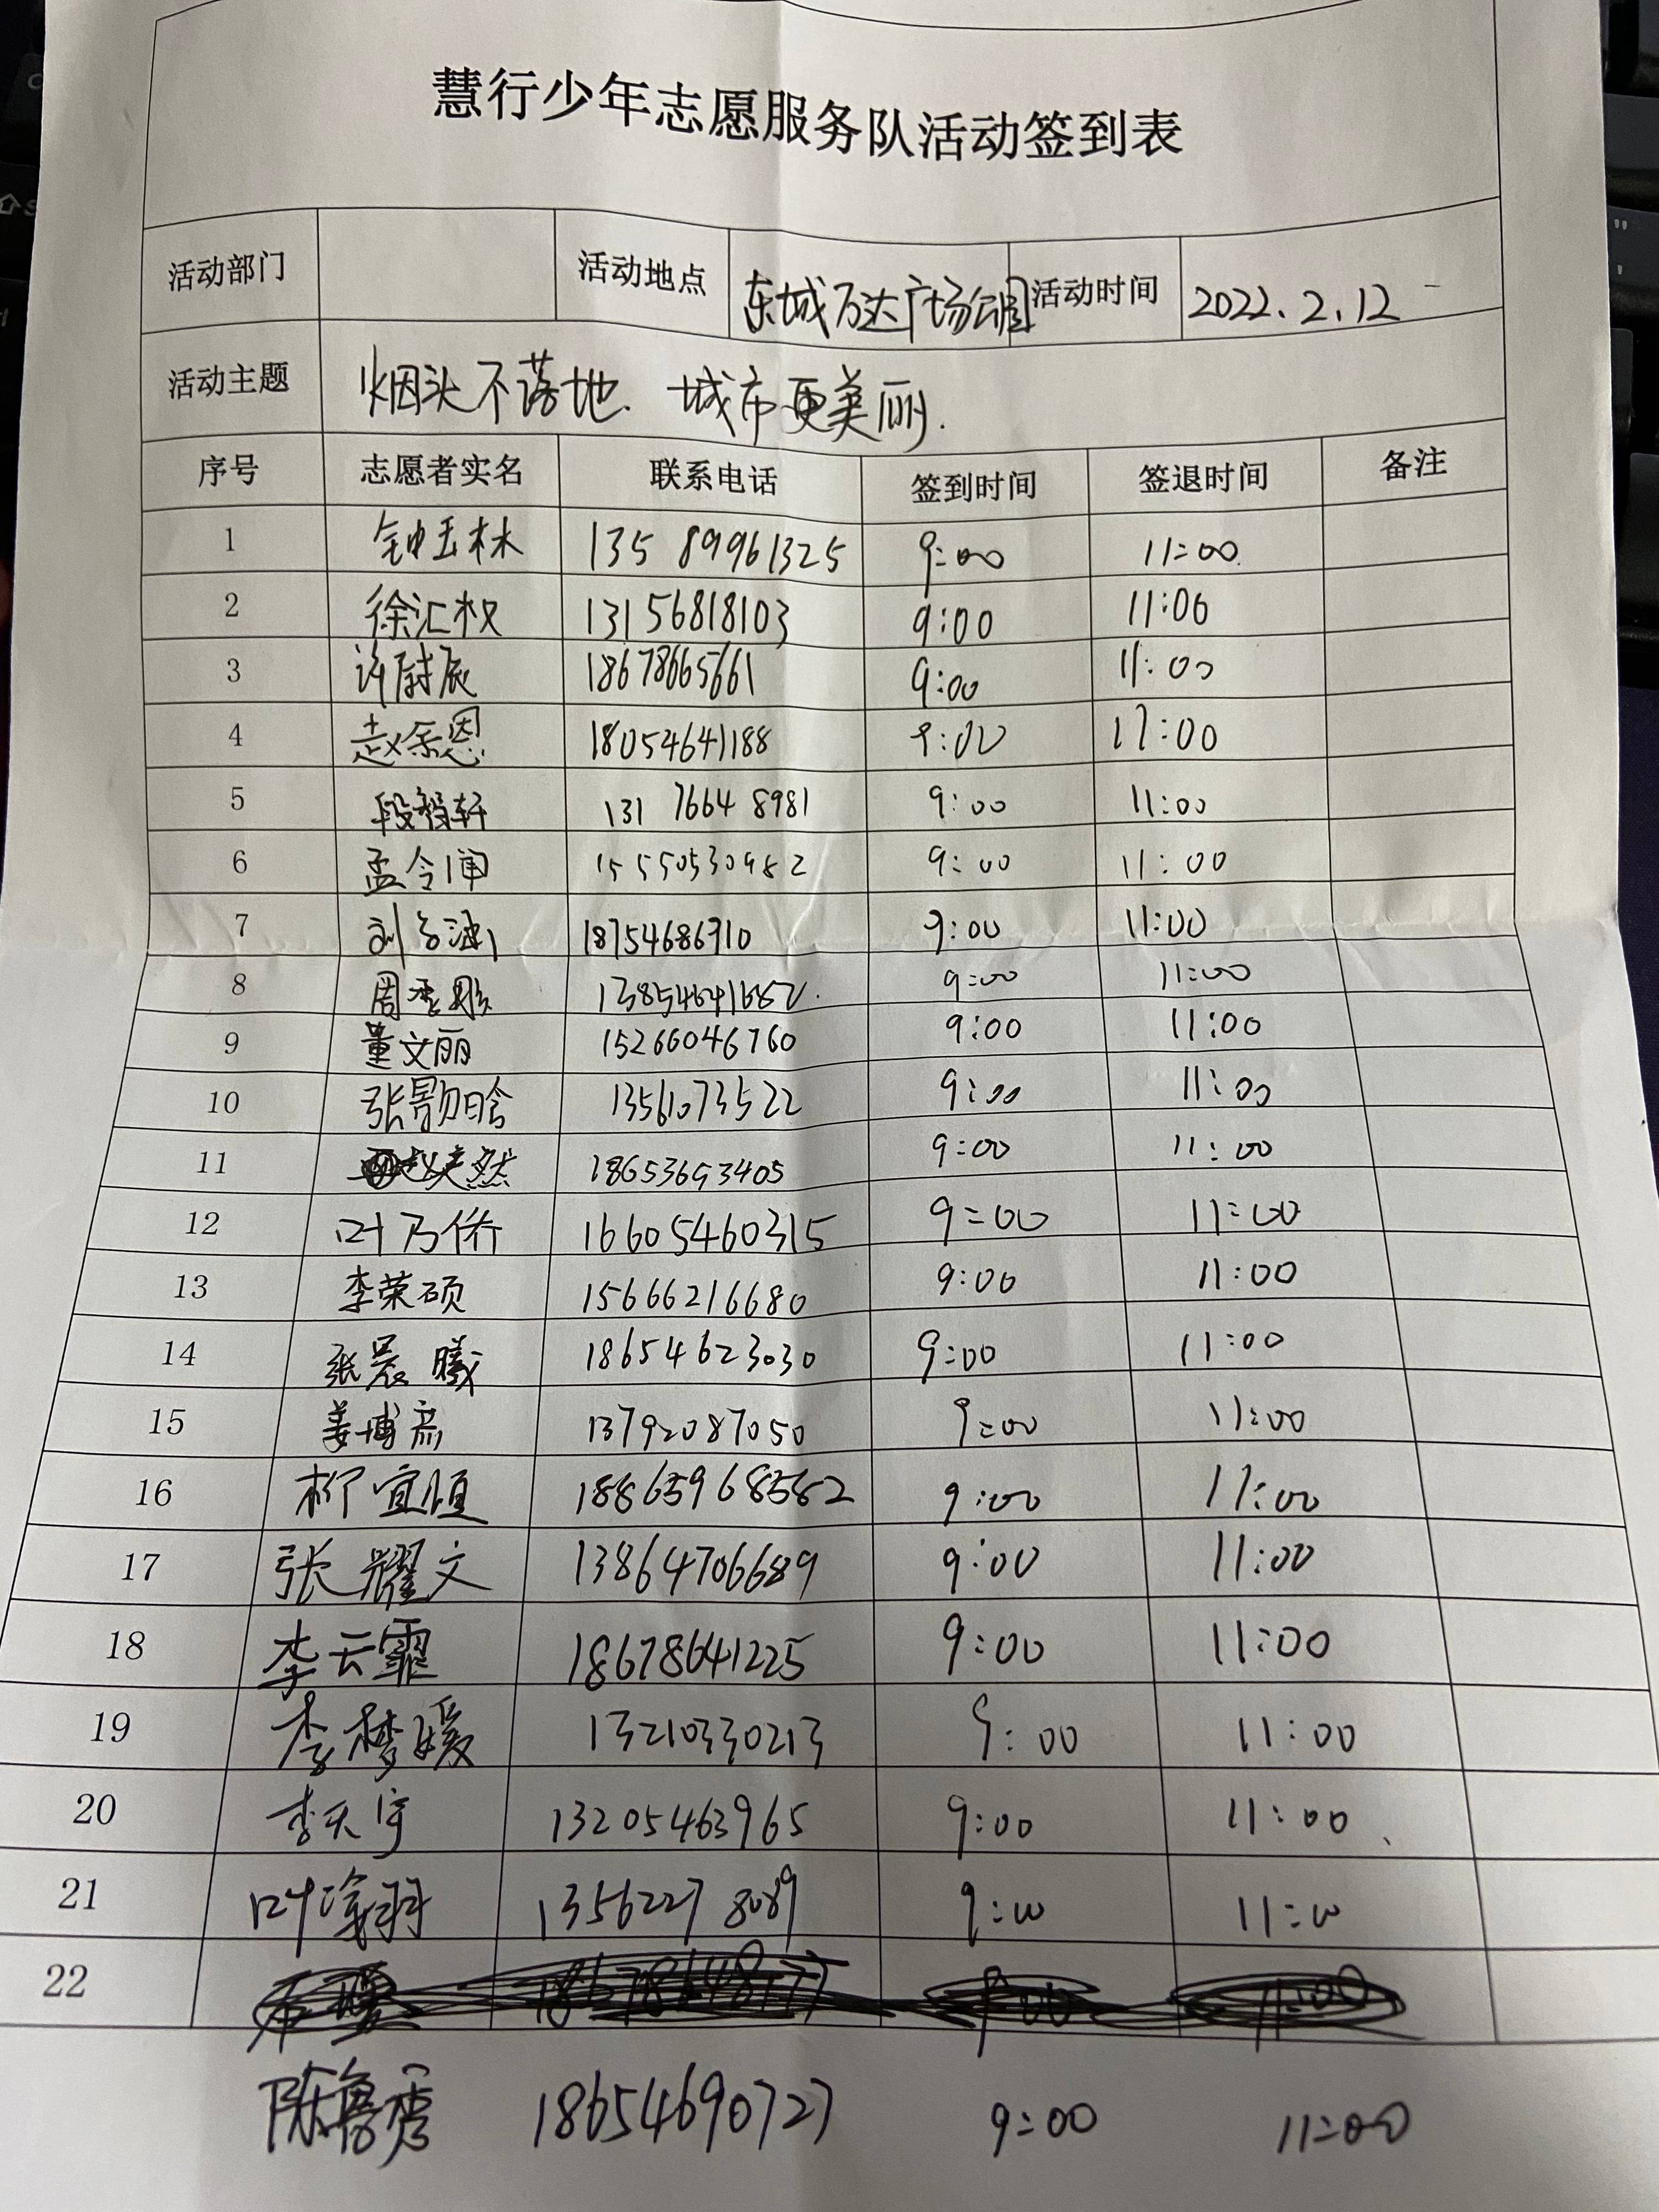 慧行少年志愿服务队活动签到表
活动部门 活动地点 东城万达广场公园 活动时间 2022.2.12
活动主题 烟头不落地. 城市更美丽.
序号 志愿者实名 联系电话 签到时间 签退时间 备注
1 钟玉林 135 89961325 9:00 11:00
2 徐汇权 13156818103 9:00 11:00
3 许尉辰 18678665661 9:00 11:00
4 赵余恩 18054641188 9:00 11:00
5 段毅轩 131 7664 8981 9:00 11:00
6 孟令 15550530982 9:00 11:00
7 刘 18754686710 9:00 11:00
8 周 13854641682 9:00 11:00
9 董文丽 15266046760 9:00 11:00
10 张晗 1356073522 9:00 11:00
11 然 18653693405 9:00 11:00
12 叶乃侨 16605460315 9:00 11:00
13 李荣硕 15666216680 9:00 11:00
14 张晨曦 18654623030 9:00 11:00
15 姜博 13792087050 9:00 11:00
16 柳宜恒 188659 68582 9:00 11:00
17 张耀文 13864706689 9:00 11:00
18 李云霏 18678641225 9:00 11:00
19 李梦媛 13210330213 9:00 11:00
20 李天宇 13205463965 9:00 11:00
21 叶羽 1356227 8089 9:00 11:00
22
陈鲁秀 18654690727 9:00 11:00